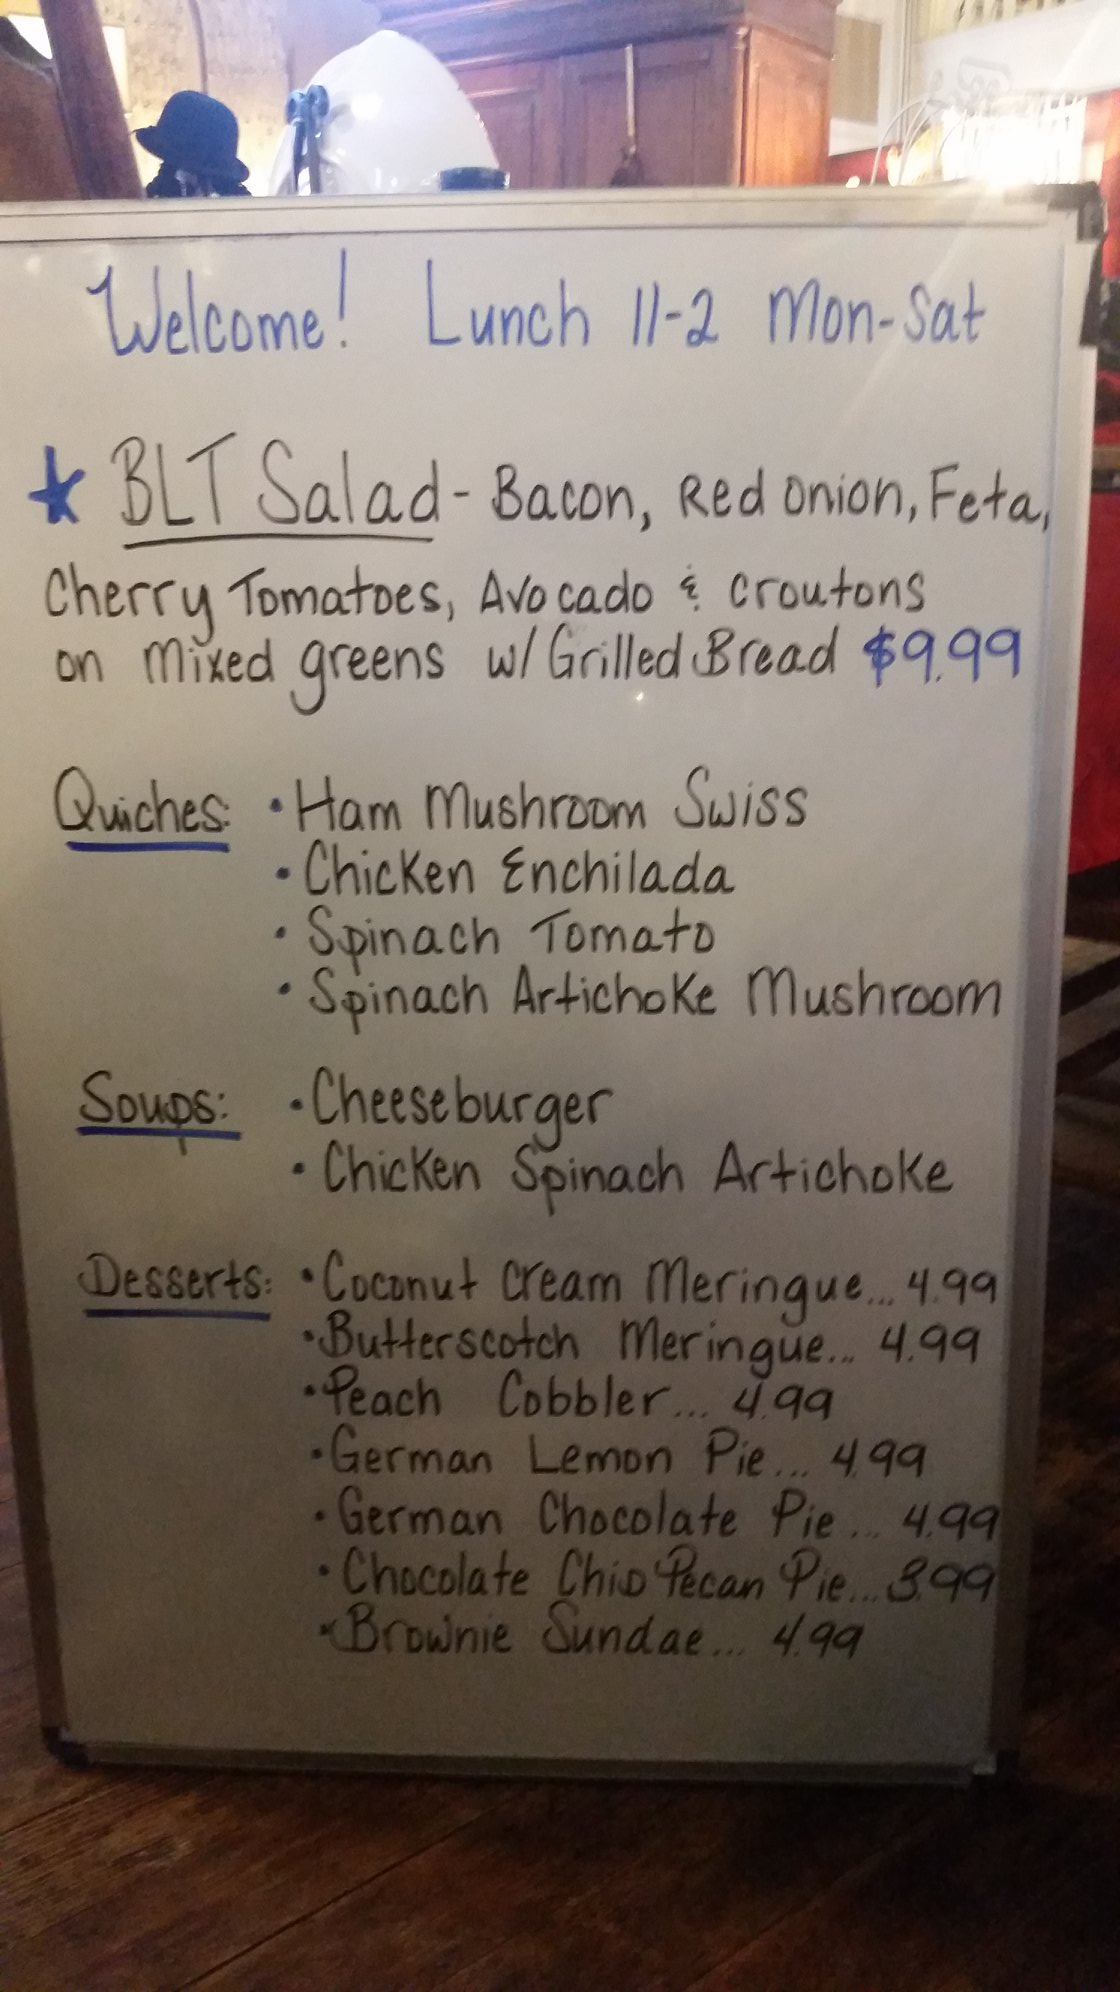 Welcome! Lunch 11-2 Mon-Sat
★ BLT Salad - Bacon, Red Onion, Feta,
Cherry Tomatoes, Avocado & Croutons
on Mixed greens w/ Grilled Bread $9.99
Quiches: • Ham Mushroom Swiss
• Chicken Enchilada
• Spinach Tomato
• Spinach Artichoke Mushroom
Soups: • Cheeseburger
• Chicken Spinach Artichoke
Desserts: • Coconut Cream Meringue... 4.99
• Butterscotch Meringue... 4.99
• Peach Cobbler... 4.99
• German Lemon Pie... 4.99
• German Chocolate Pie... 4.99
• Chocolate Chip Pecan Pie... 3.99
• Brownie Sundae... 4.99